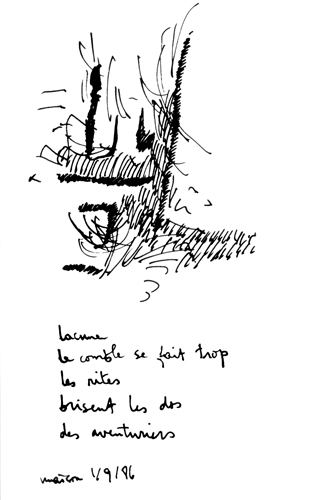 lacune
le comble se fait trop
les rites
brisent les dos
des aventuriers
1/9/86